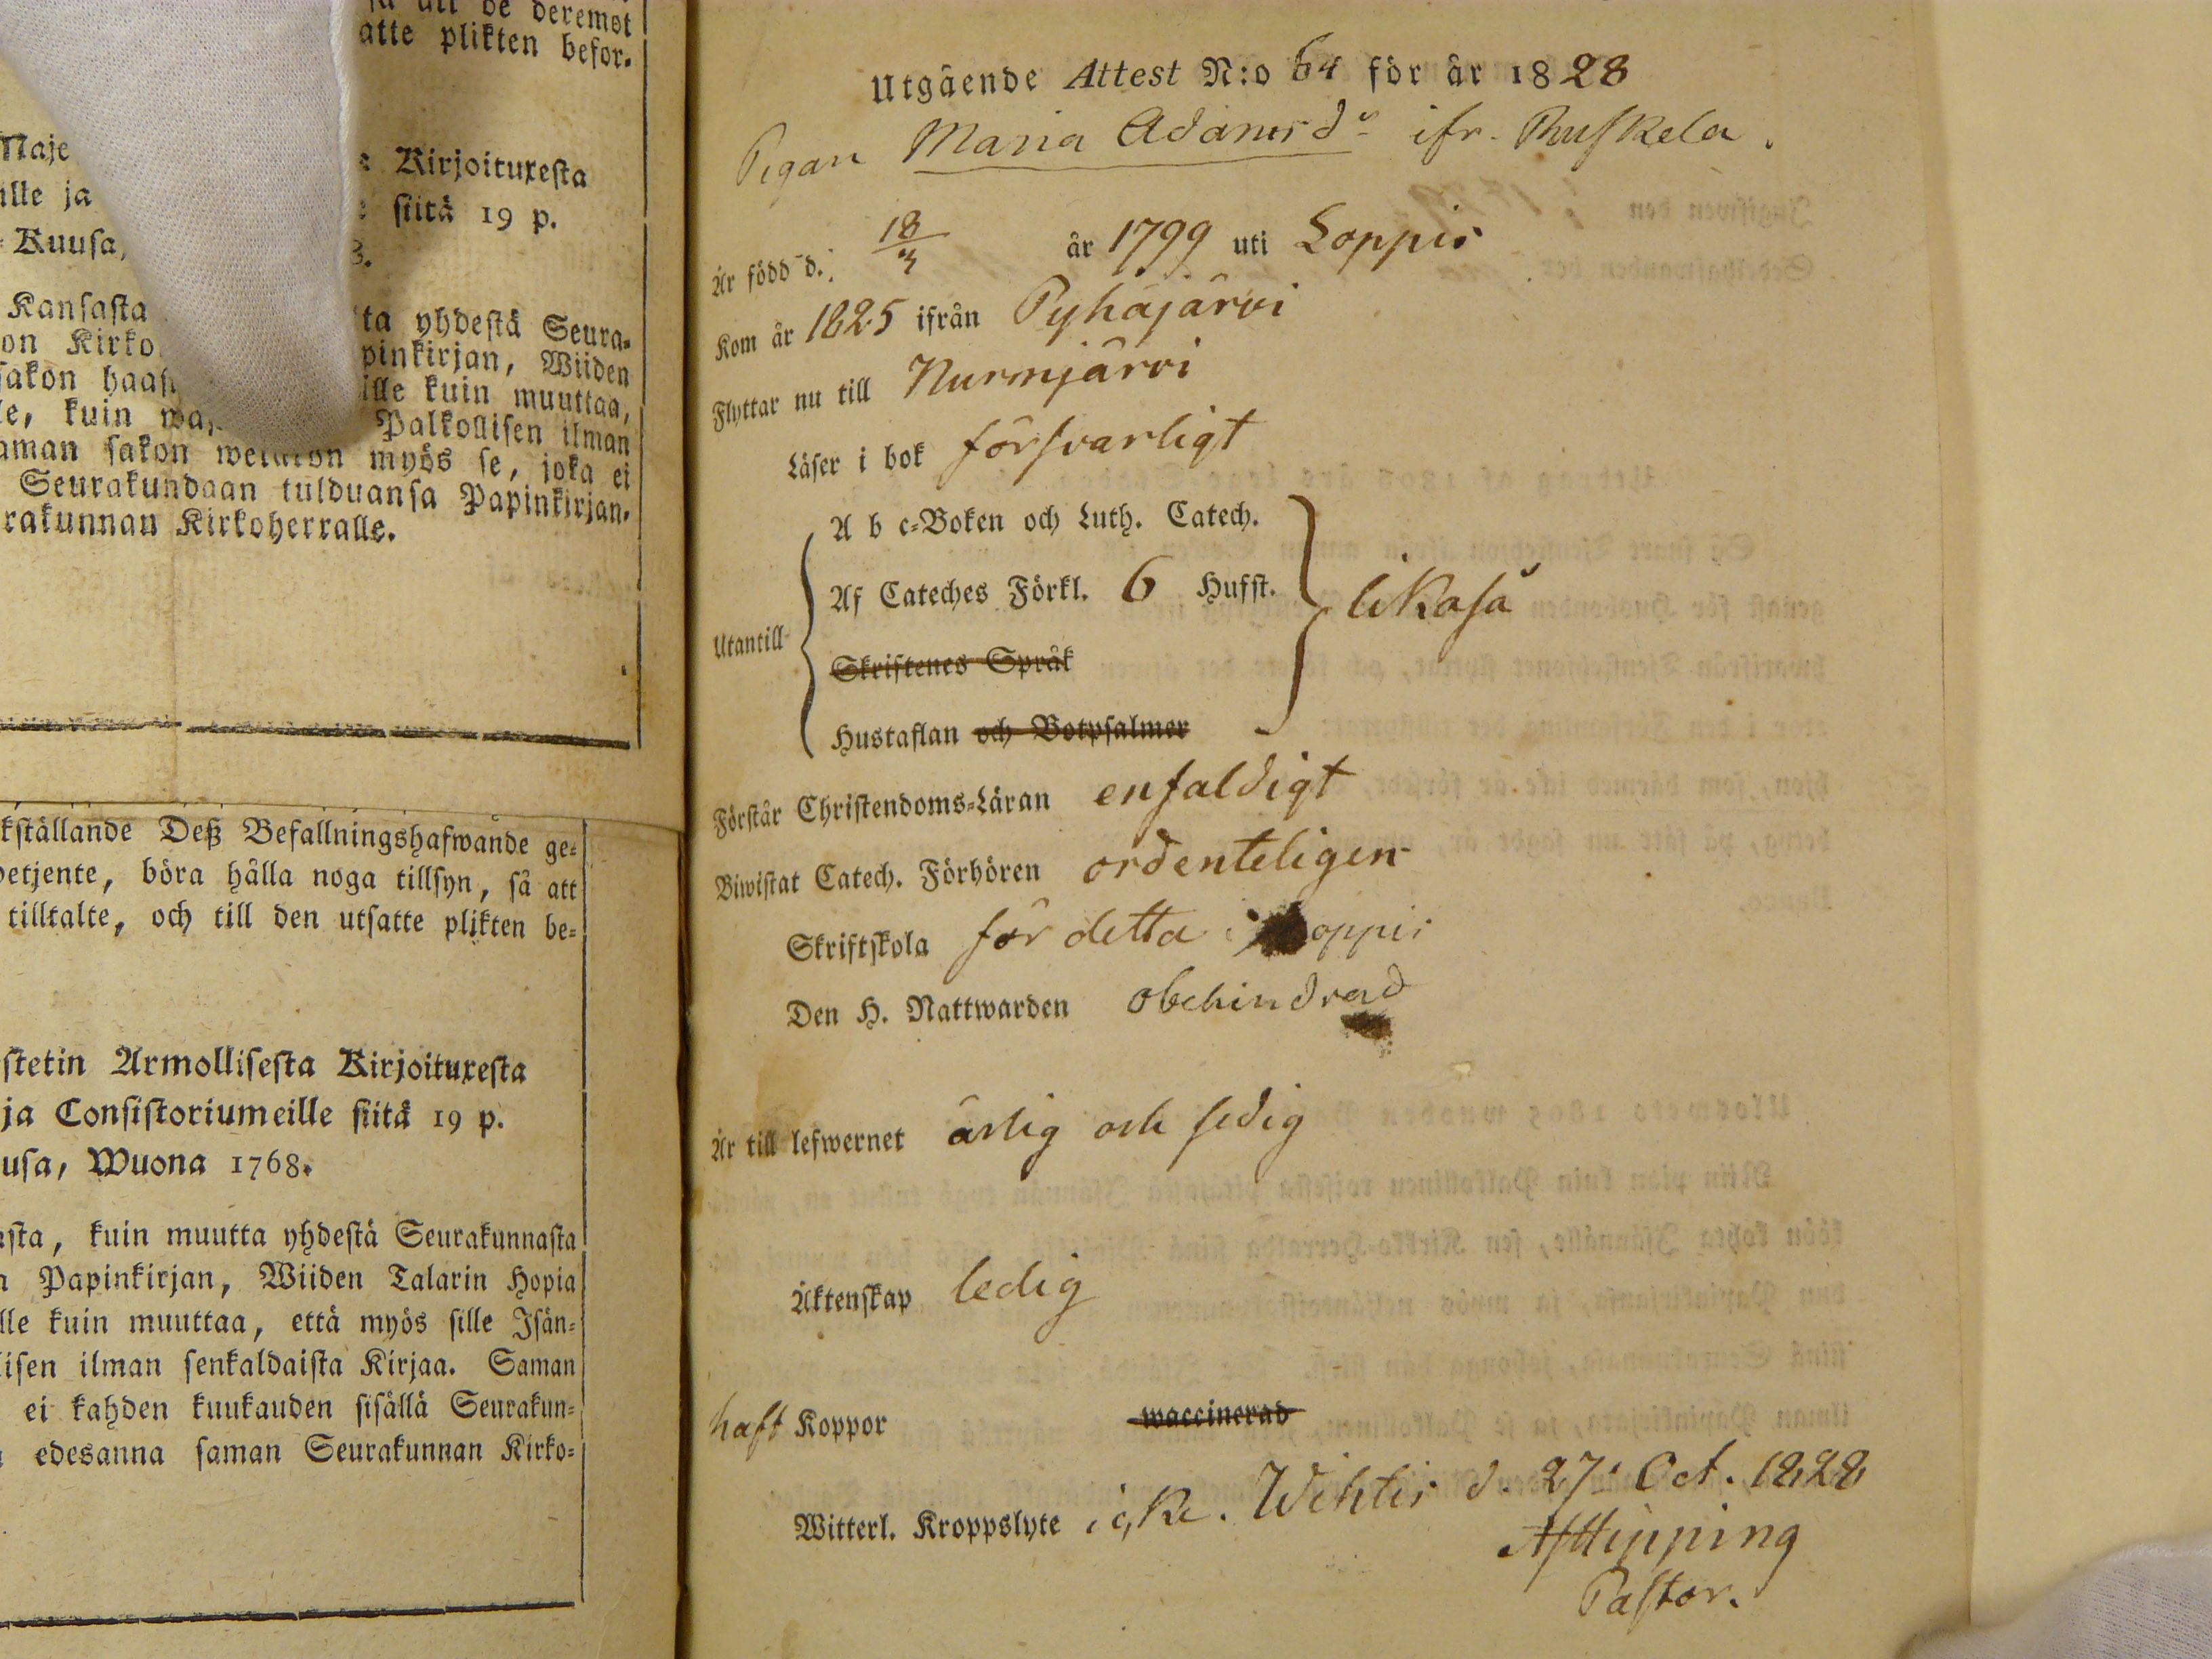 ſå att de deremot
atte plikten befor.
Maje
Kirjoituxeſta
ille ja
ſiitä 19 p.
Kuuſa,
8.
Kanſaſta
ta yhdeſtä Seura-
on Kirko
pinkirjan, Wiiden
ſakon haaſt
ille kuin muuttaa,
le, kuin wa
Palkolliſen ilman
aman ſakon
myös ſe, joka ei
Seurakundaan tulduanſa Papinkirjan-
rakunnan Kirkoherralle.
kſtällande Deß Befallningshafwande ge-
betjente, böra hålla noga tillſyn, ſå att
tilltalte, och till den utſatte plikten be-
ſtetin Armolliſeſta Kirjoituxeſta
ja Conſiſtoriumeille ſiitä 19 p.
uſa, Wuona 1768.
aſta, kuin muutta yhdeſtä Seurakunnaſta
n Papinkirjan, Wiiden Talarin Hopia
lle kuin muuttaa, että myös ſille Iſän-
liſen ilman ſenkaldaiſta Kirjaa. Saman
ei kahden kuukauden ſiſällä Seurakun-
edesanna ſaman Seurakunnan Kirko-
Utgående Attest N:o 64 för år 1828
Pigan Maria Adamsdr ifr. Ruſkela.
Är född d. 18/3 år 1799 uti Loppis
Kom år 1825 ifrån Pyhäjärvi
Flyttar nu till Nurmjärvi
Läſer i bok förſvarligt
A b c-Boken och Luth. Catech.
Af Cateches Förkl. 6 Hufſt.
likaſå
Utantill
Skriftenes Språk
Hustaflan och Botpſalmer
Förſtår Chriſtendoms-Läran enfaldigt
Biwiſtat Catech. Förhören ordenteligen
Skriftſkola för detta i Loppis
Den H. Nattwarden obehindrad
Är till lefwernet ärlig och ſedig
Äktenſkap ledig
haft Koppor waccinerad
Witterl. Kroppslyte icke. Wihtis d. 27 Oct. 1828
AJHipping
Paſtor.